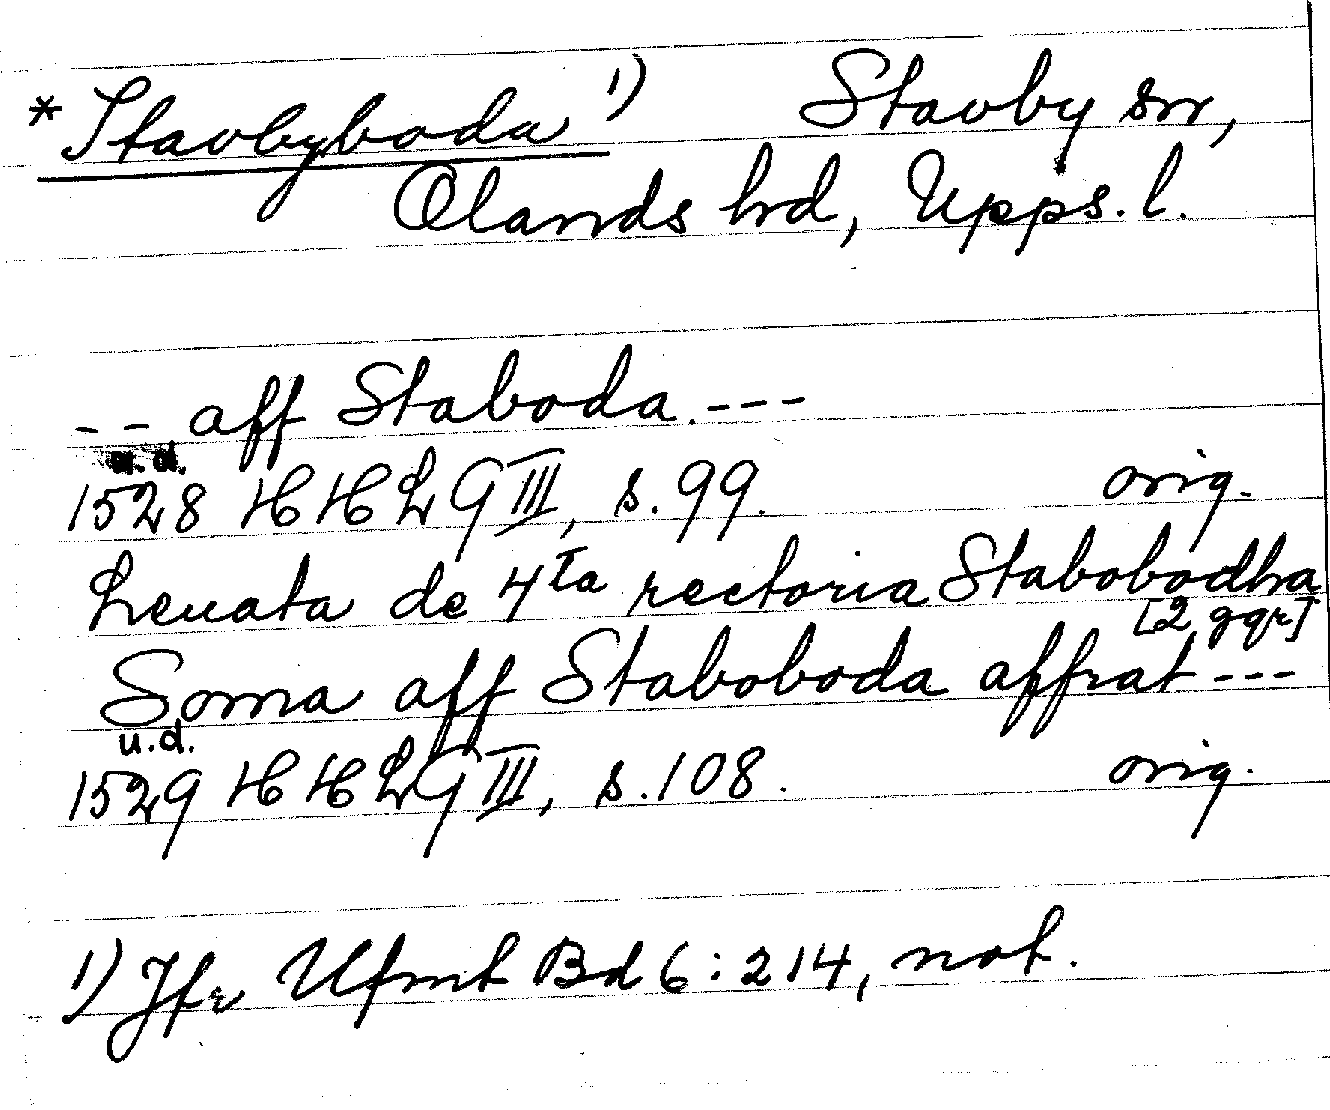 *Stavbyboda 1) Stavby sn,
Olands hd, Upps. l.
-- aff Staboda. ---
u.d.
1528 HHL 9 III, s. 99. orig.
Leuata de 4ta rectoria Stabobodha
[2 ggr]
Soma aff Staboboda affrat ---
u.d.
1529 HHL 9 III, s. 108. orig.
1) Jfr Ufmt Bd 6:214, not.